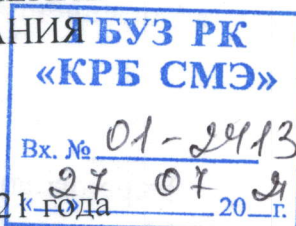 АНИЯ
ГБУЗ РК
«КРБ СМЭ»
Вх. № 01-2413
«27» 07 20 21 г.
21 года